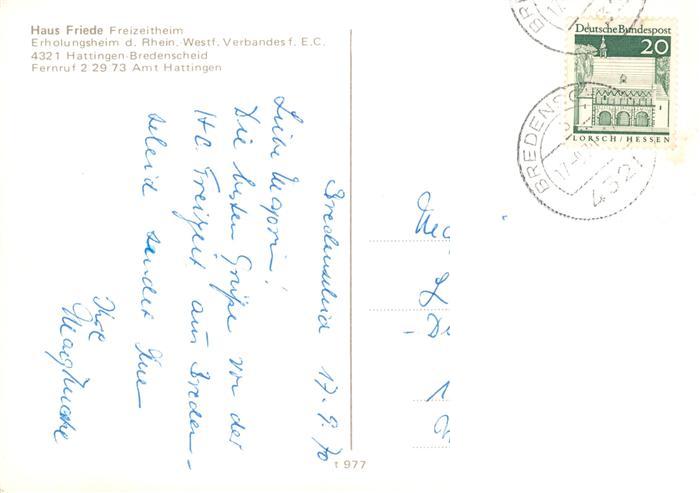 Haus Friede Freizeitheim
Erholungsheim d. Rhein.-Westf. Verbandes f. E.C.
4321 Hattingen-Bredenscheid
Fernruf 2 29 73 Amt Hattingen
Deutsche Bundespost
20
LORSCH/HESSEN
BREDENSC
4321
Bredenscheid 17.9.70
Liebe
Die besten Grüße von der
HC Freizeit aus Breden-
scheid sendet Ihnen
Ihre
t 977